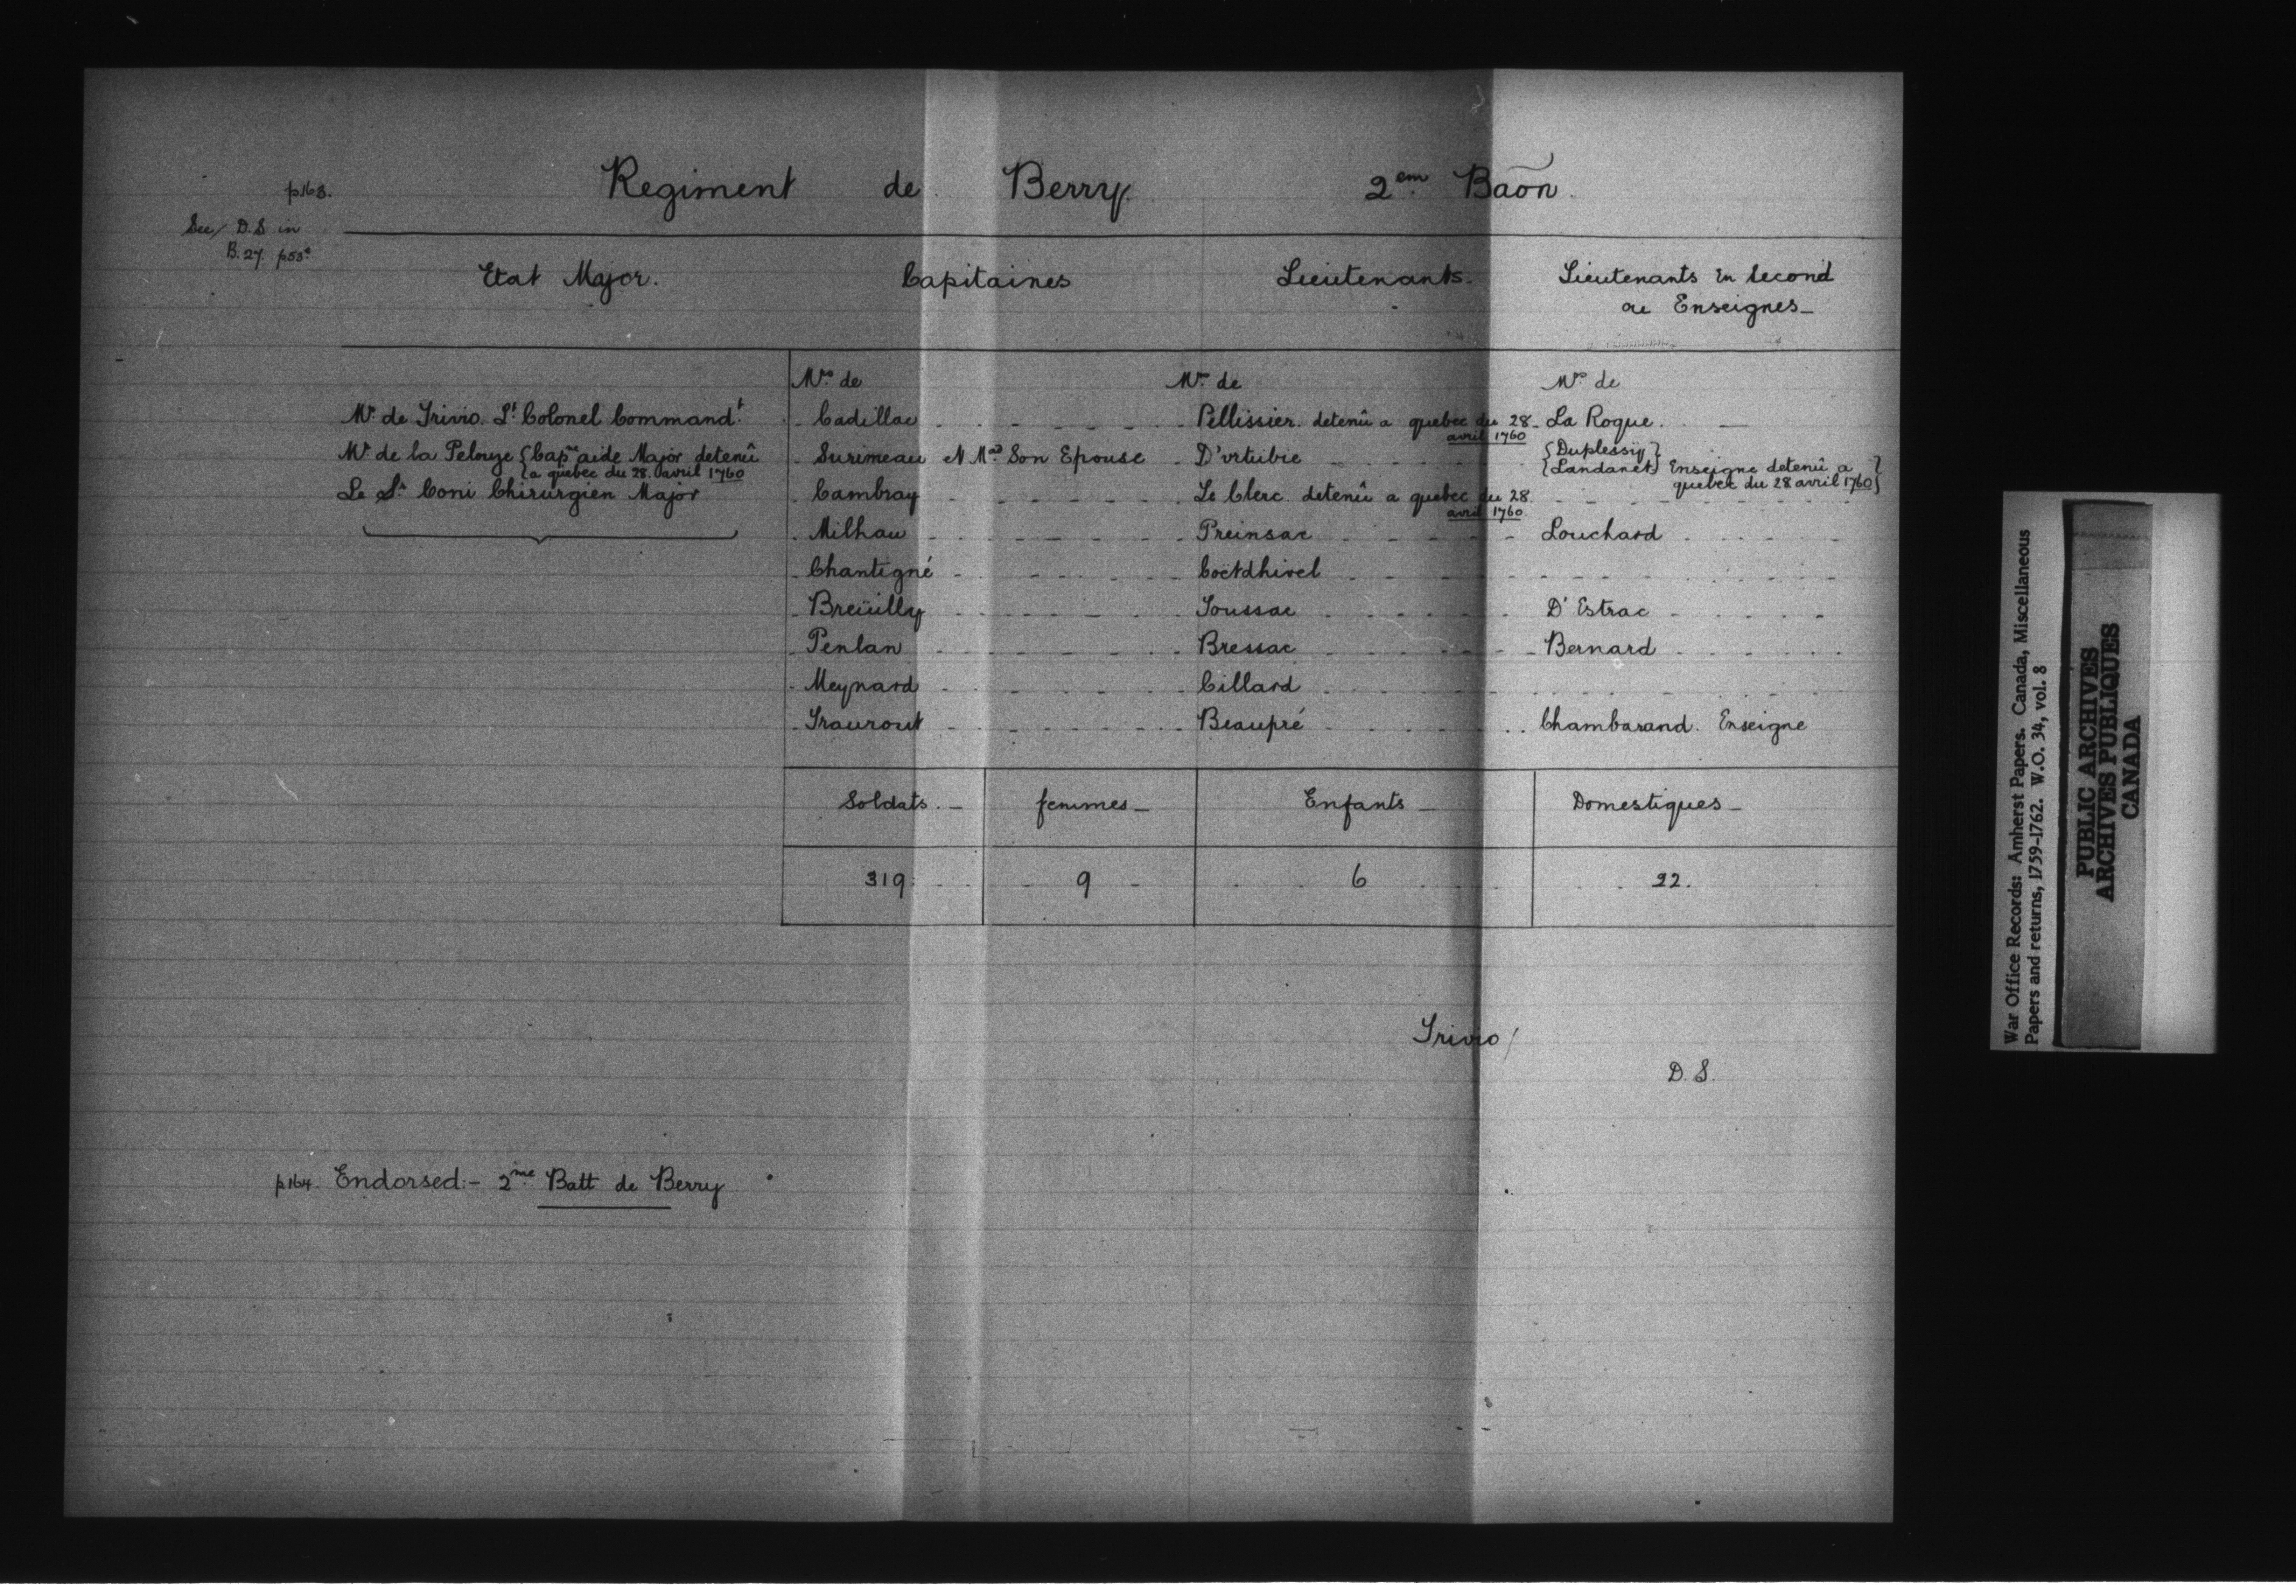 p163.
Regiment de Berry. 2em Baõn.
See D.S in
B.27. p53
Etat Major. Capitaines Lieutenants. Lieutenants En Second
ou Enseignes_
Mrs de Mrs de Mrs de
Mr de Trivio. Lt Colonel Command.t Cadillac Pellissier. detenû a quebec du 28 avril 1760 La Roque.
Mr de la Pelouze {Capne aide Major detenû Surimeau Et Mad Son Epouse D'vrtubie {Duplessiy}
{a quebec du 28. avril 1760 {Landanet} Enseigne detenû a }
quebec du 28 avril 1760}
Le Sr Coni Chirurgien Major Cambray Le Clerc detenû a quebec du 28 avril 1760
Milhau Preinsac Louchard
Chantigné Coëtdhivel
Breüilly Toussac D'Estrac
Penlan Bressac Bernard
Meynard Cillard
Traurout Beaupré Chambarand. Enseigne
Soldats._ femmes_ Enfants_ Domestiques_
319 9 6 22.
Trivio/
D.S.
p164. Endorsed:- 2me Batt de Berry
War Office Records: Amherst Papers. Canada, Miscellaneous
Papers and returns, 1759-1762. W.O. 34, vol. 8
PUBLIC ARCHIVES
ARCHIVES PUBLIQUES
CANADA